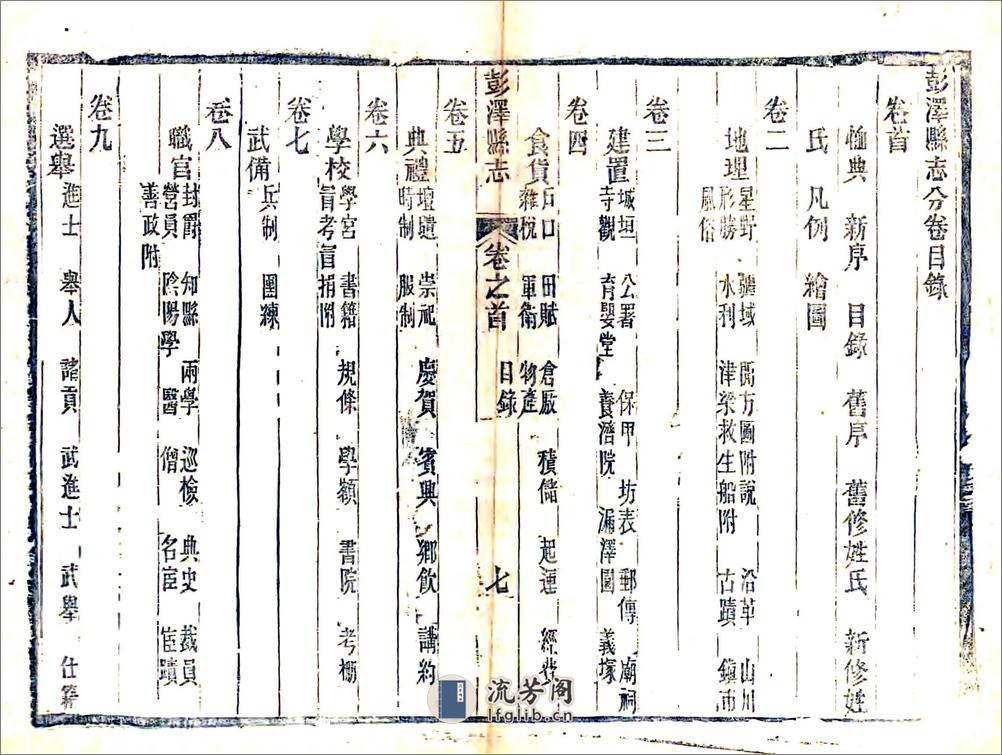 彭澤縣志分卷目錄
卷首
恤典 新序 目錄 舊序 舊修姓氏 新修姓
氏 凡例 繪圖
卷二
地理 星野 疆域 開方圖附說 沿革 山川
形勝 水利 津梁救生船附 古蹟 鎮市
風俗
卷三
建置 城垣 公署 保甲 坊表 郵傳 廟祠
寺觀 育嬰堂 養濟院 漏澤園 義塚
卷四
食貨 戶口 田賦 倉厫 積儲 起運 經費
雜稅 軍衛 物產
彭澤縣志 卷之首 目錄 七
卷五
典禮 壇壝 崇祀 慶賀 賓興 鄉飲 講約
時制 服制
卷六
學校 學宮 書籍 規條 學額 書院 考棚
盲考盲捐附
卷七
武備 兵制 團練
卷八
職官 封爵 知縣 兩學 巡檢 典史 裁員
營員 陰陽學 醫 僧 名宦 宦蹟
善政附
卷九
選舉 進士 舉人 諸貢 武進士 武舉 仕籍
流芳阁
lfglib.cn